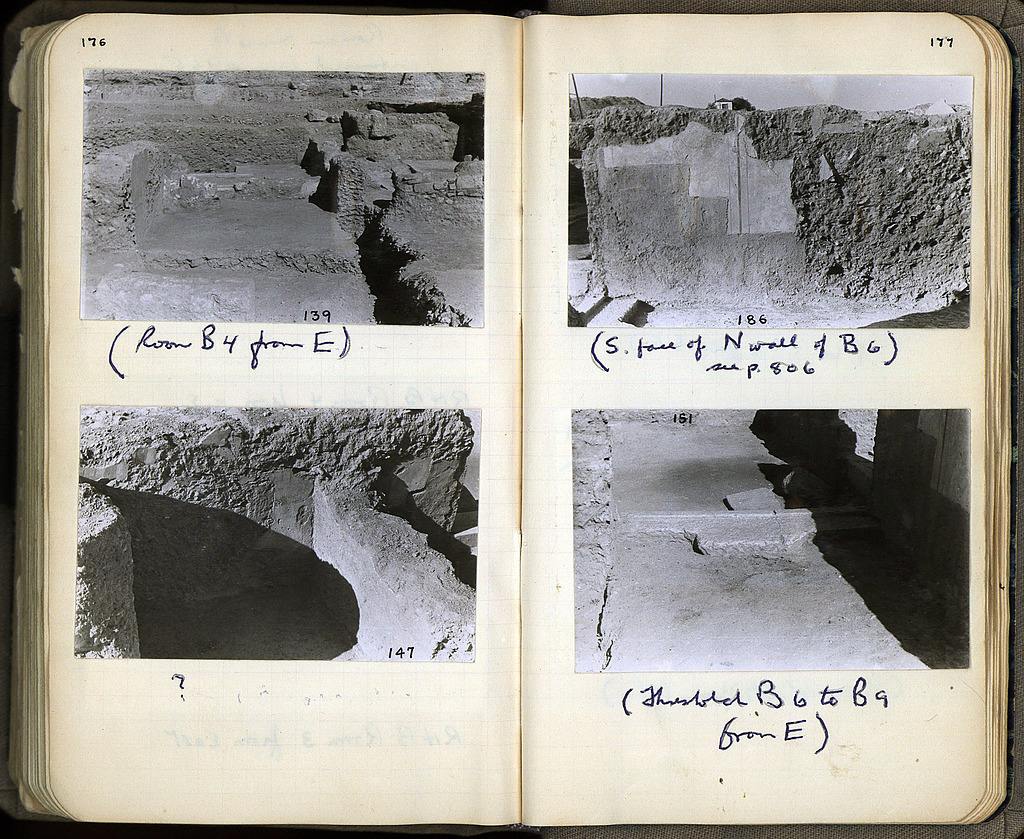 176
139
(Room B4 from E)
147
?
177
186
(S. face of N wall of B6)
see p. 806
151
(Threshold B6 to B9
from E)